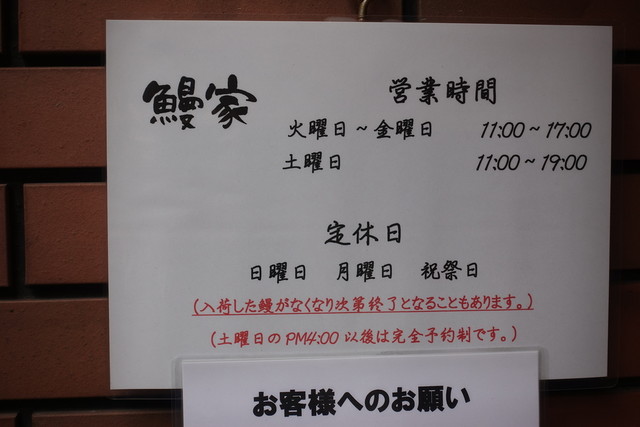 鰻家
営業時間
火曜日～金曜日 11:00～17:00
土曜日 11:00～19:00
定休日
日曜日 月曜日 祝祭日
(入荷した鰻がなくなり次第終了となることもあります。)
(土曜日のPM4:00以後は完全予約制です。)
お客様へのお願い